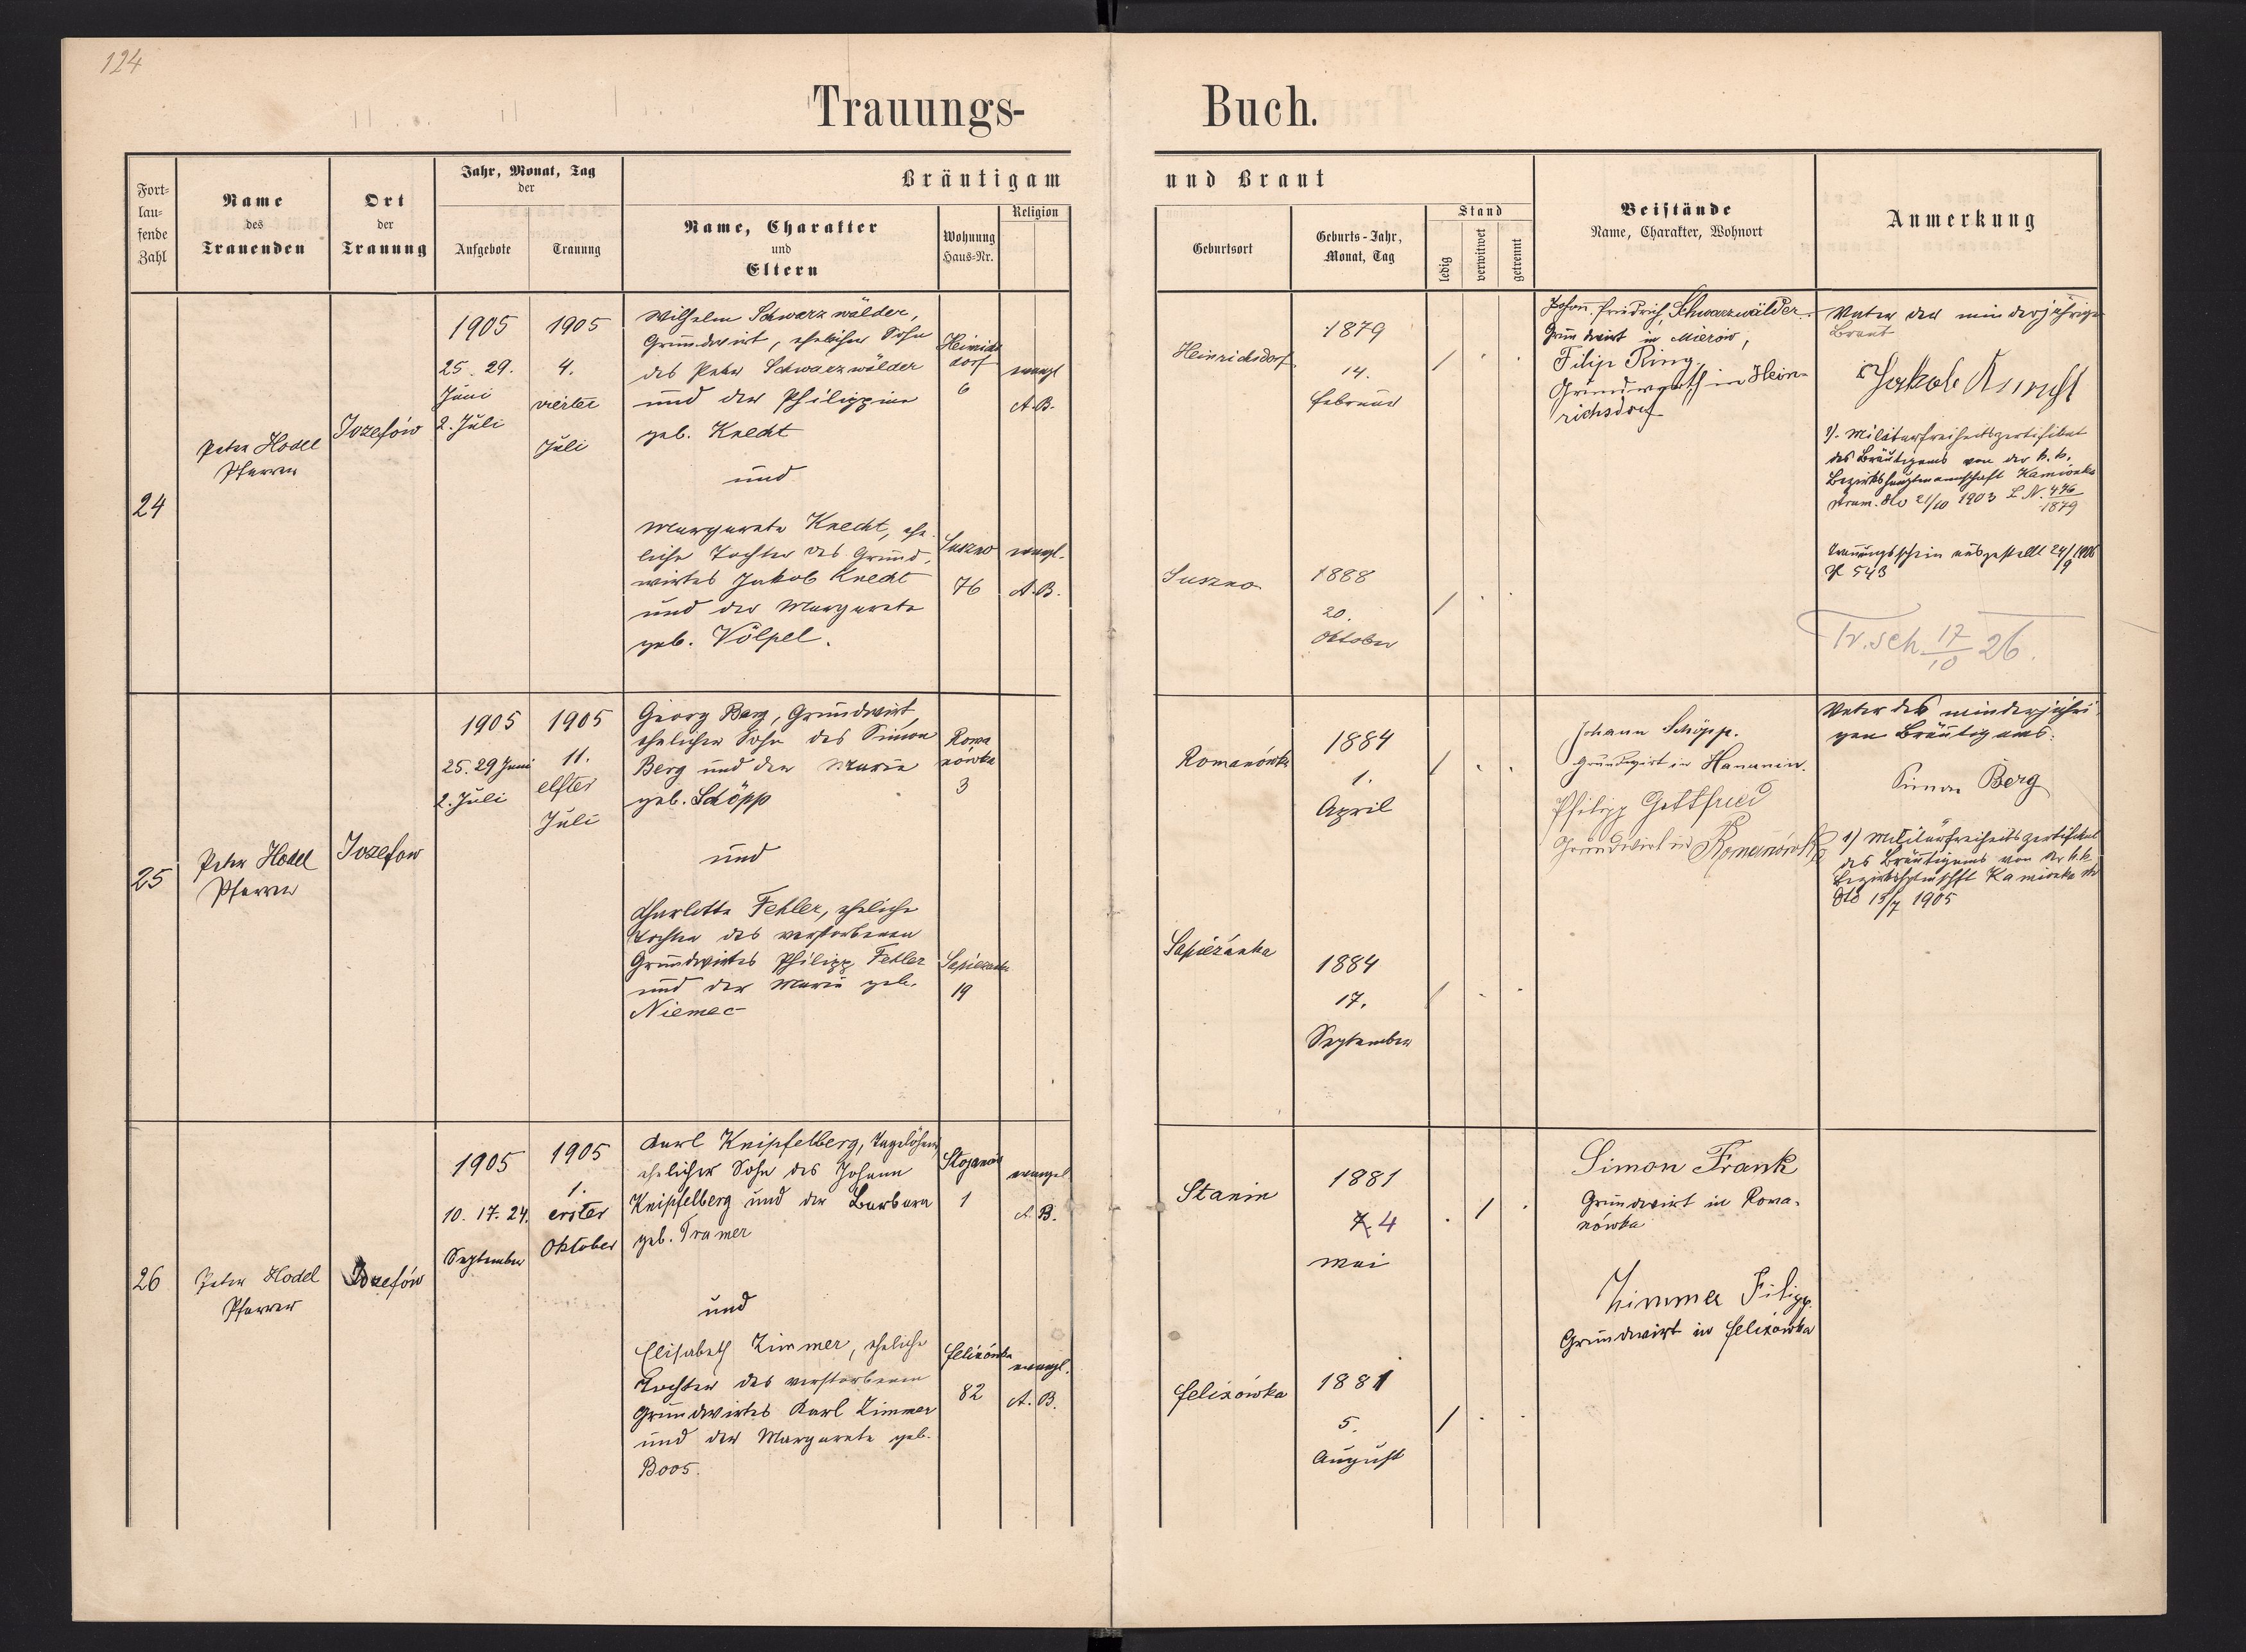 124
Trauungs-
Buch.
Fort-
lau-
fende
Zahl
Name
des
Trauenden
Ort
der
Trauung
Jahr, Monat, Tag
der
Aufgebote
Trauung
Bräutigam
Name, Charakter
und
Eltern
Wohnung
Haus-Nr.
Religion
und Braut
Geburtsort
Geburts-Jahr,
Monat, Tag
Stand
ledig
verwitwet
getrennt
Beistände
Name, Charakter, Wohnort
Anmerkung
24
Peter Hodel
Pfarrer
Jozefów
1905
25. 29.
Juni
2. Juli
1905
4.
vierter
Juli
Wilhelm Schwarzwälder,
Grundwirt, ehelicher Sohn
des Peter Schwarzwälder
und der Philippine
geb. Knecht
und
Margarete Knecht, ehe-
liche Tochter des Grund-
wirtes Jakob Knecht
und der Margarete
geb. Völpel.
Heinrichs
dorf
6
evangl
A.B.
Suszno
76
evangl.
A.B.
Heinrichsdorf
1879
14.
Februar
/ . .
Suszno
1888
20.
Oktober
/ . .
Johann Friedrich Schwarzwälder
Grundwirt in Mierów,
Filip Ring
Grundwirth in Hein-
richsdorf
Vater der minderjährigen
Braut
Jakob Knecht
1). Militärfreiheitszertifikat
des Bräutigams von der k. k.
Bezirkshauptmannschaft Kamionka
strum. dto 21/10 1903 L. N. 446/1879
Trauungsschein ausgestellt 24/9 1906
N 543
Tr.sch 17/10 26.
25
Peter Hodel
Pfarrer
Jozefow
1905
25. 29 Juni
2. Juli
1905
11.
elfter
Juli
Georg Berg, Grundwirt,
ehelicher Sohn des Simon
Berg und der Marie
geb. Schöpp
und
Charlotte Fehler, eheliche
Tochter des verstorbenen
Grundwirtes Philipp Fehler
und der Marie geb.
Niemec
Roma
nówka
3
Sapiezanka
19
Romanówka
1884
1.
April
/ . .
Sapiezanka
1884
17.
September
/ . .
Johann Schöpp.
Grundwirt in Hanunin.
Philipp Gottfried
Grundwirt in Romanówka
Vater des minderjähri
gen Bräutigams.
Simon Berg
1) Militärfreiheitszertifikat
des Bräutigams von der k.k.
Kamionka str
dto 15/7 1905
26
Peter Hodel
Pfarrer
Jozefów
1905
10. 17. 24.
September
1905
1.
erster
Oktober
Karl Knipfelberg, Taglöhner,
ehelicher Sohn des Johann
Knipfelberg und der Barbara
geb. Tramer
und
Elisabeth Zimmer, eheliche
Tochter des verstorbenen
Grundwirtes Karl Zimmer
und der Margarete geb.
Boos.
Stojanów
1
evangel
A. B.
Felizówka
82
evangl.
A. B.
Stanin
1881
7. 4
Mai
. / .
Felizówka
1881
5.
August
/ . .
Simon Frank
Grundwirt in Roma-
nówka
Zimmer Filipp.
Grundwirt in Felizówka